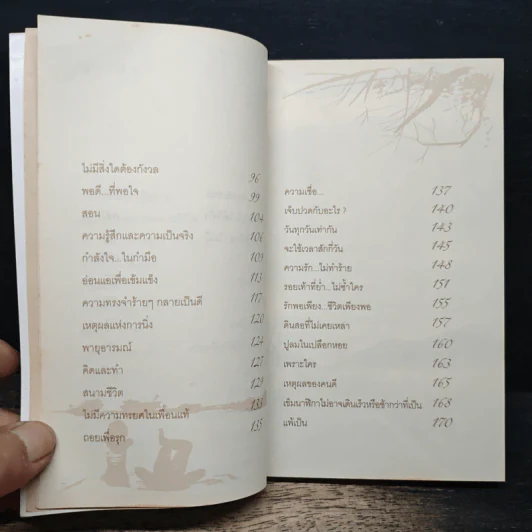 ไม่มีสิ่งใดต้องกังวล 96
พอดี...ที่พอใจ 99
สอน 104
ความรู้สึกและความเป็นจริง 106
กำลังใจ...ในกำมือ 109
อ่อนแอเพื่อเข้มแข็ง 113
ความทรงจำร้ายๆ กลายเป็นดี 117
เหตุผลแห่งการนิ่ง 120
พายุอารมณ์ 124
คิดและทำ 127
สนามชีวิต 129
ไม่มีความทรยศในเพื่อนแท้ 133
ถอยเพื่อรุก 135
ความเชื่อ... 137
เจ็บปวดกับอะไร ? 140
วันทุกวันเท่ากัน 143
จะใช้เวลาสักกี่วัน 145
ความรัก...ไม่ทำร้าย 148
รอยเท้าที่ย่ำ...ไม่ซ้ำใคร 151
รักพอเพียง...ชีวิตเพียงพอ 155
ดินสอที่ไม่เคยเหลา 157
ปูลมในเปลือกหอย 160
เพราะใคร 163
เหตุผลของคนดี 165
เข็มนาฬิกาไม่อาจเดินเร็วหรือช้ากว่าที่เป็น 168
แพ้เป็น 170